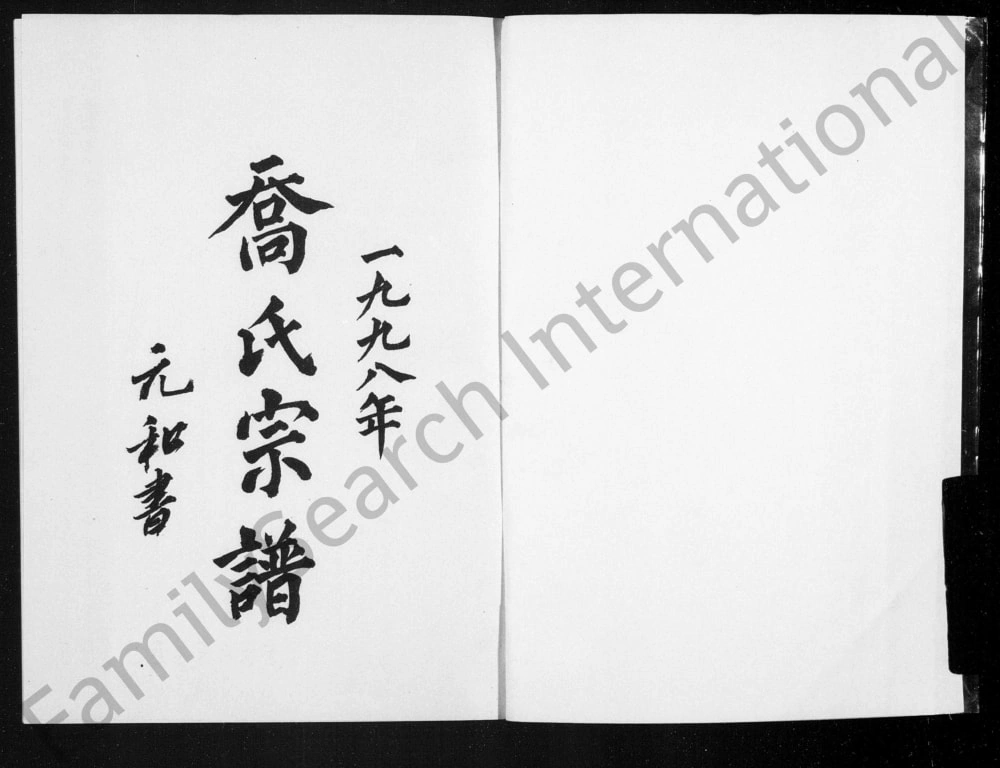 一九九八年
喬氏宗譜
元和書
FamilySearch International